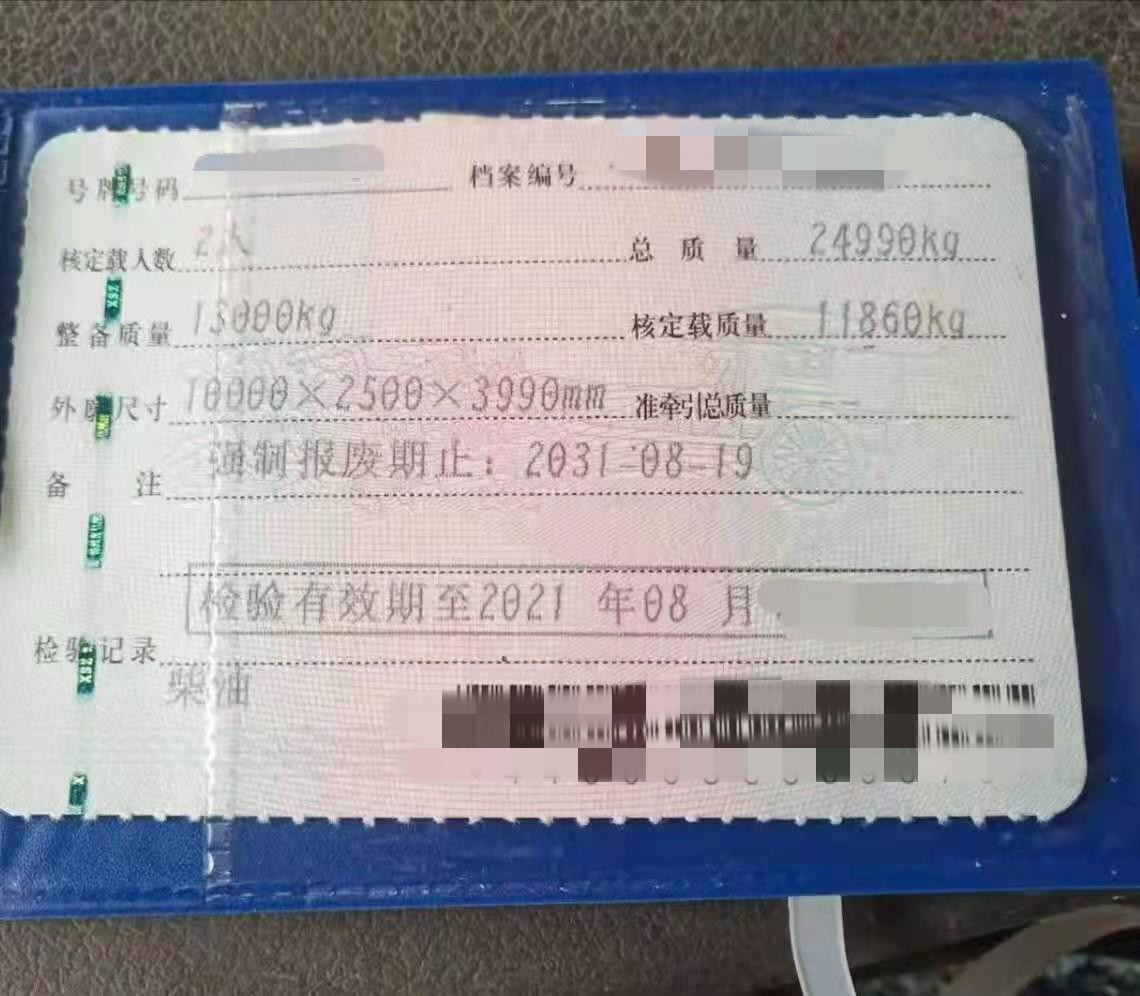 号牌号码 档案编号
核定载人数 2人 总质量 24990kg
整备质量 13000kg 核定载质量 11860kg
外廓尺寸 10000×2500×3990mm 准牵引总质量
备注 强制报废期止：2031-08-19
检验有效期至2021 年08 月
检验记录
柴油